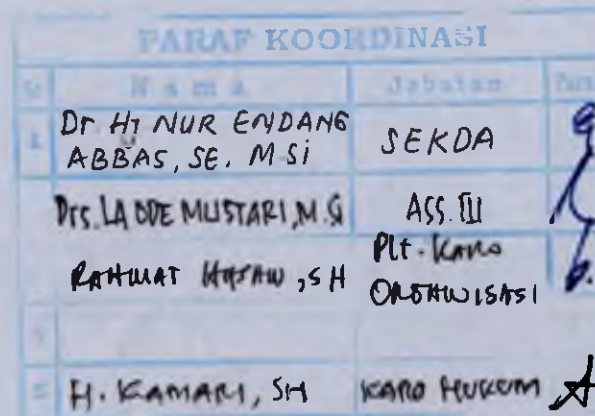 PARAF KOORDINASI
No Nama Jabatan Paraf
1 Dr Hj NUR ENDANG
ABBAS, SE. M Si SEKDA
Drs. LA ODE MUSTARI, M.Si ASS. III
RAHMAT HASAN, SH Plt. KARO
ORGANISASI
5 H. KAMARI, SH KARO HUKUM